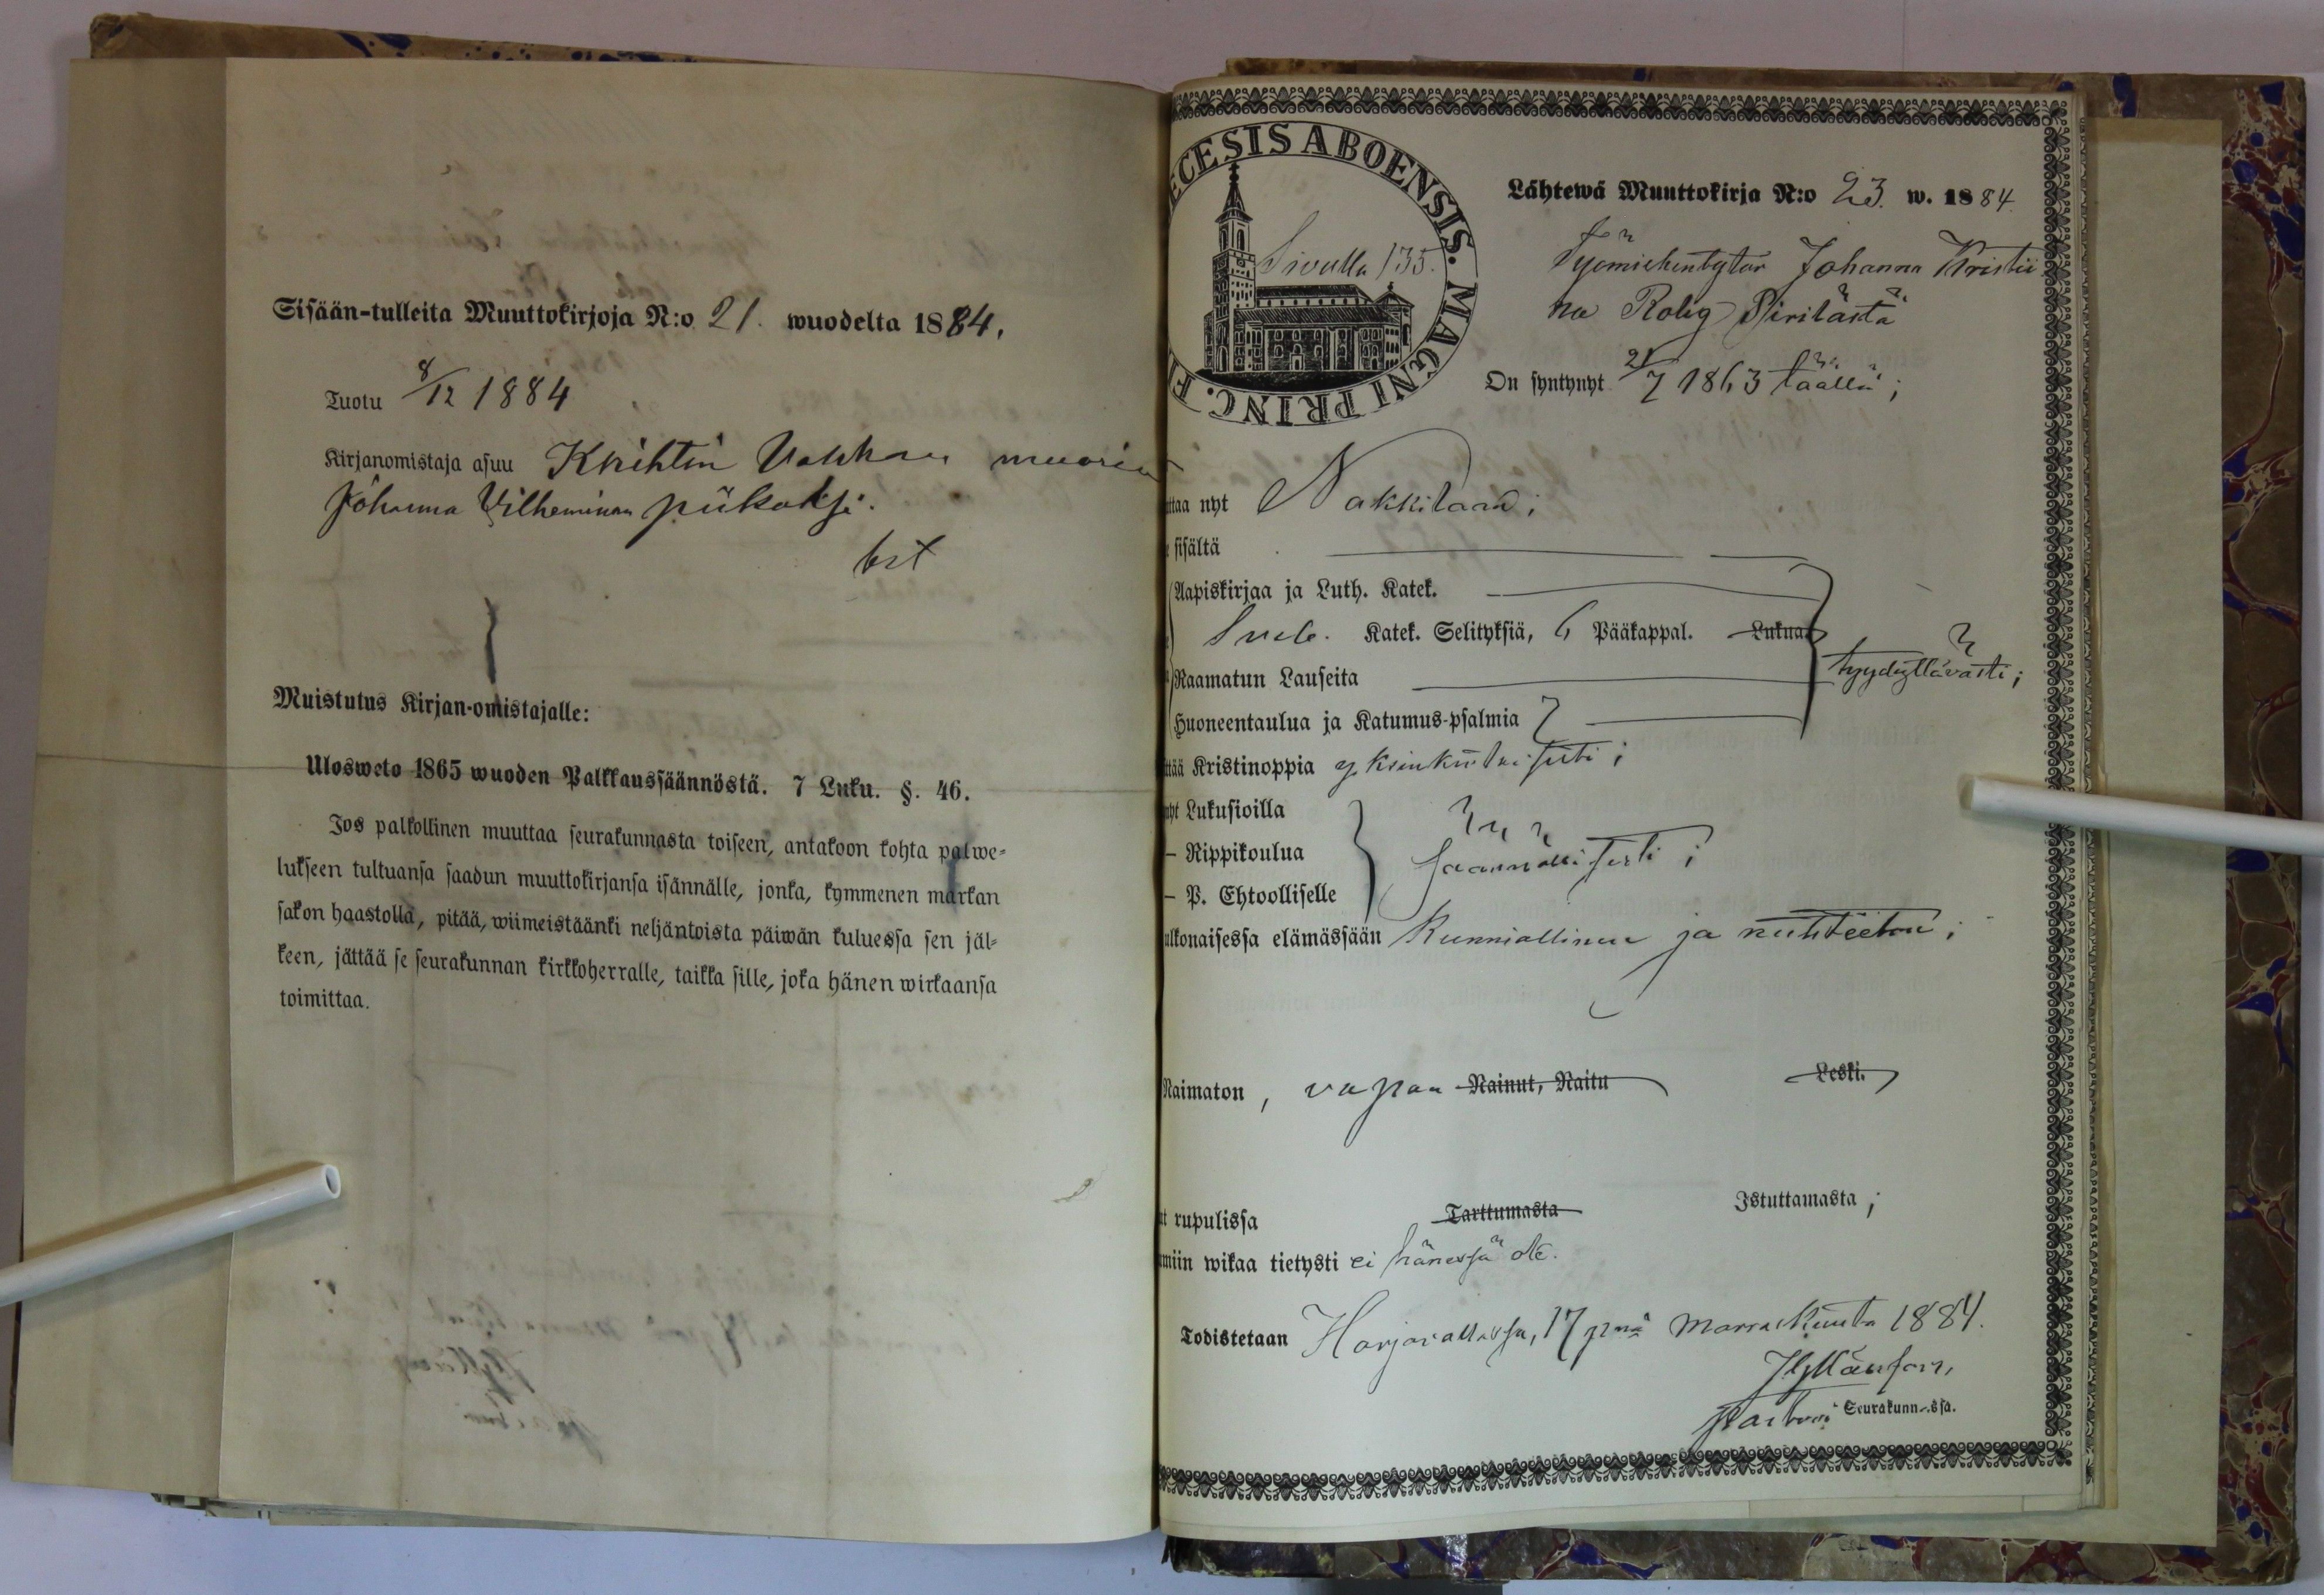 Sisään-tulleita Muuttokirjoja N:o 21. wuodelta 1884.
Tuotu 8/12 1884
Kirjanomistaja asuu Krihtin Uahhau muorin
Johanna Vilheminan piikaksi.
Muistutus Kirjan-omistajalle:
Ulosweto 1865 wuoden Palkkaussäännöstä. 7 Luku. §. 46.
Jos palkollinen muuttaa seurakunnasta toiseen, antakoon kohta palwe=
lukseen tultuansa saadun muuttokirjansa isännälle, jonka, kymmenen markan
sakon haastolla, pitää, wiimeistäänki neljäntoista päiwän kuluessa sen jäl=
keen, jättää se seurakunnan kirkkoherralle, taikka sille, joka hänen wirkaansa
toimittaa.
ECESIS ABOENSIS. MAGNI PRINC. F
Sivulla 135.
Lähtewä Muuttokirja N:o 23. w. 1884.
Työmiehentytär Johanna Kristii
na Rolig Pirilästä
On syntynyt 21/7 1863 täällä;
ttaa nyt Nakkilaan;
sisältä
Aapiskirjaa ja Luth. Katek.
Sveb. Katek. Selityksiä, 6 Pääkappal. Lukua
Raamatun Lauseita
tyydyttävästi;
Huoneentaulua ja Katumus-psalmia
ttää Kristinoppia yksinkertaisesti;
nyt Lukusioilla
– Rippikoulua
säännöllisesti;
– P. Ehtoolliselle
ulkonaisessa elämässään Kunniallinen ja nuhteeton;
Naimaton, vapaa Nainut, Naitu Leski.
t rupulissa Tarttumasta Istuttamasta;
miin wikaa tietysti ei hänessä ole.
Todistetaan Harjavallassa, 17 pnä Marraskuuta 1884.
Seurakunnassa.